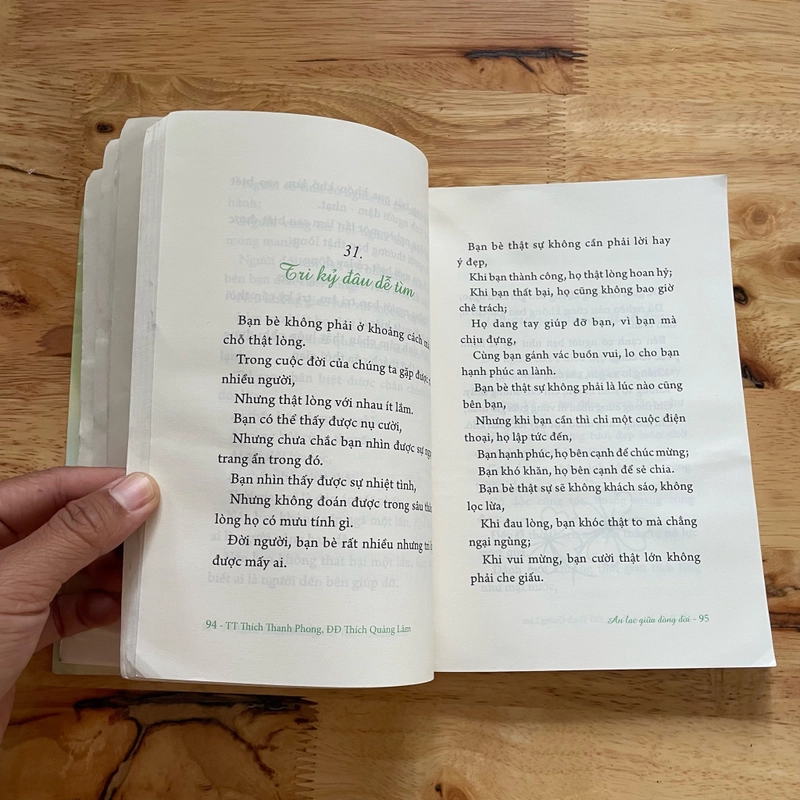 31.
Tri kỷ đâu dễ tìm
Bạn bè không phải ở khoảng cách mà
chỗ thật lòng.
Trong cuộc đời của chúng ta gặp được
nhiều người,
Nhưng thật lòng với nhau ít lắm.
Bạn có thể thấy được nụ cười,
Nhưng chưa chắc bạn nhìn được sự
trang ẩn trong đó.
Bạn nhìn thấy được sự nhiệt tình,
Nhưng không đoán được trong sâu
lòng họ có mưu tính gì.
Đời người, bạn bè rất nhiều nhưng tri
được mấy ai.
94 - TT Thích Thanh Phong, ĐĐ Thích Quảng Lâm
Bạn bè thật sự không cần phải lời hay
ý đẹp,
Khi bạn thành công, họ thật lòng hoan hỷ;
Khi bạn thất bại, họ cũng không bao giờ
chê trách;
Họ dang tay giúp đỡ bạn, vì bạn mà
chịu đựng,
Cùng bạn gánh vác buồn vui, lo cho bạn
hạnh phúc an lành.
Bạn bè thật sự không phải là lúc nào cũng
bên bạn,
Nhưng khi bạn cần thì chỉ một cuộc điện
thoại, họ lập tức đến,
Bạn hạnh phúc, họ bên cạnh để chúc mừng;
Bạn khó khăn, họ bên cạnh để sẻ chia.
Bạn bè thật sự sẽ không khách sáo, không
lọc lừa,
Khi đau lòng, bạn khóc thật to mà chẳng
ngại ngùng;
Khi vui mừng, bạn cười thật lớn không
phải che giấu.
An lạc giữa dòng đời - 95